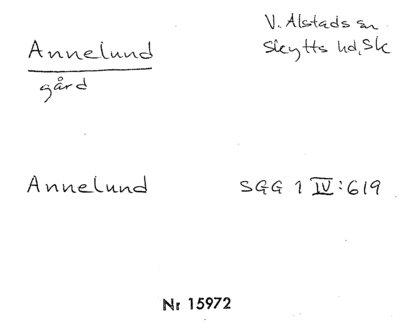 Annelund
V. Alstads sn
Skytts hd, Sk
gård
Annelund SGG 1 IV:619
Nr 15972